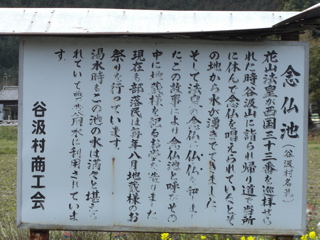 念仏池（谷汲村名礼）
花山法皇が西国三十三番を巡拝せら
れた時谷汲山に詣られ帰り道で当所
に休んで念仏を唱えられていると池
の地から水が湧きでてきました。
そして法皇が念仏に仏仏と和しま
たこの故事により念仏池と呼びその
中に地蔵様を祀るお堂を造りました
現在も部落民は毎年八月地蔵様のお
祭りを行っています。
渇水時もこの池の水は満々と湛えら
れていて農業用水に利用されていま
す。
谷汲村商工会